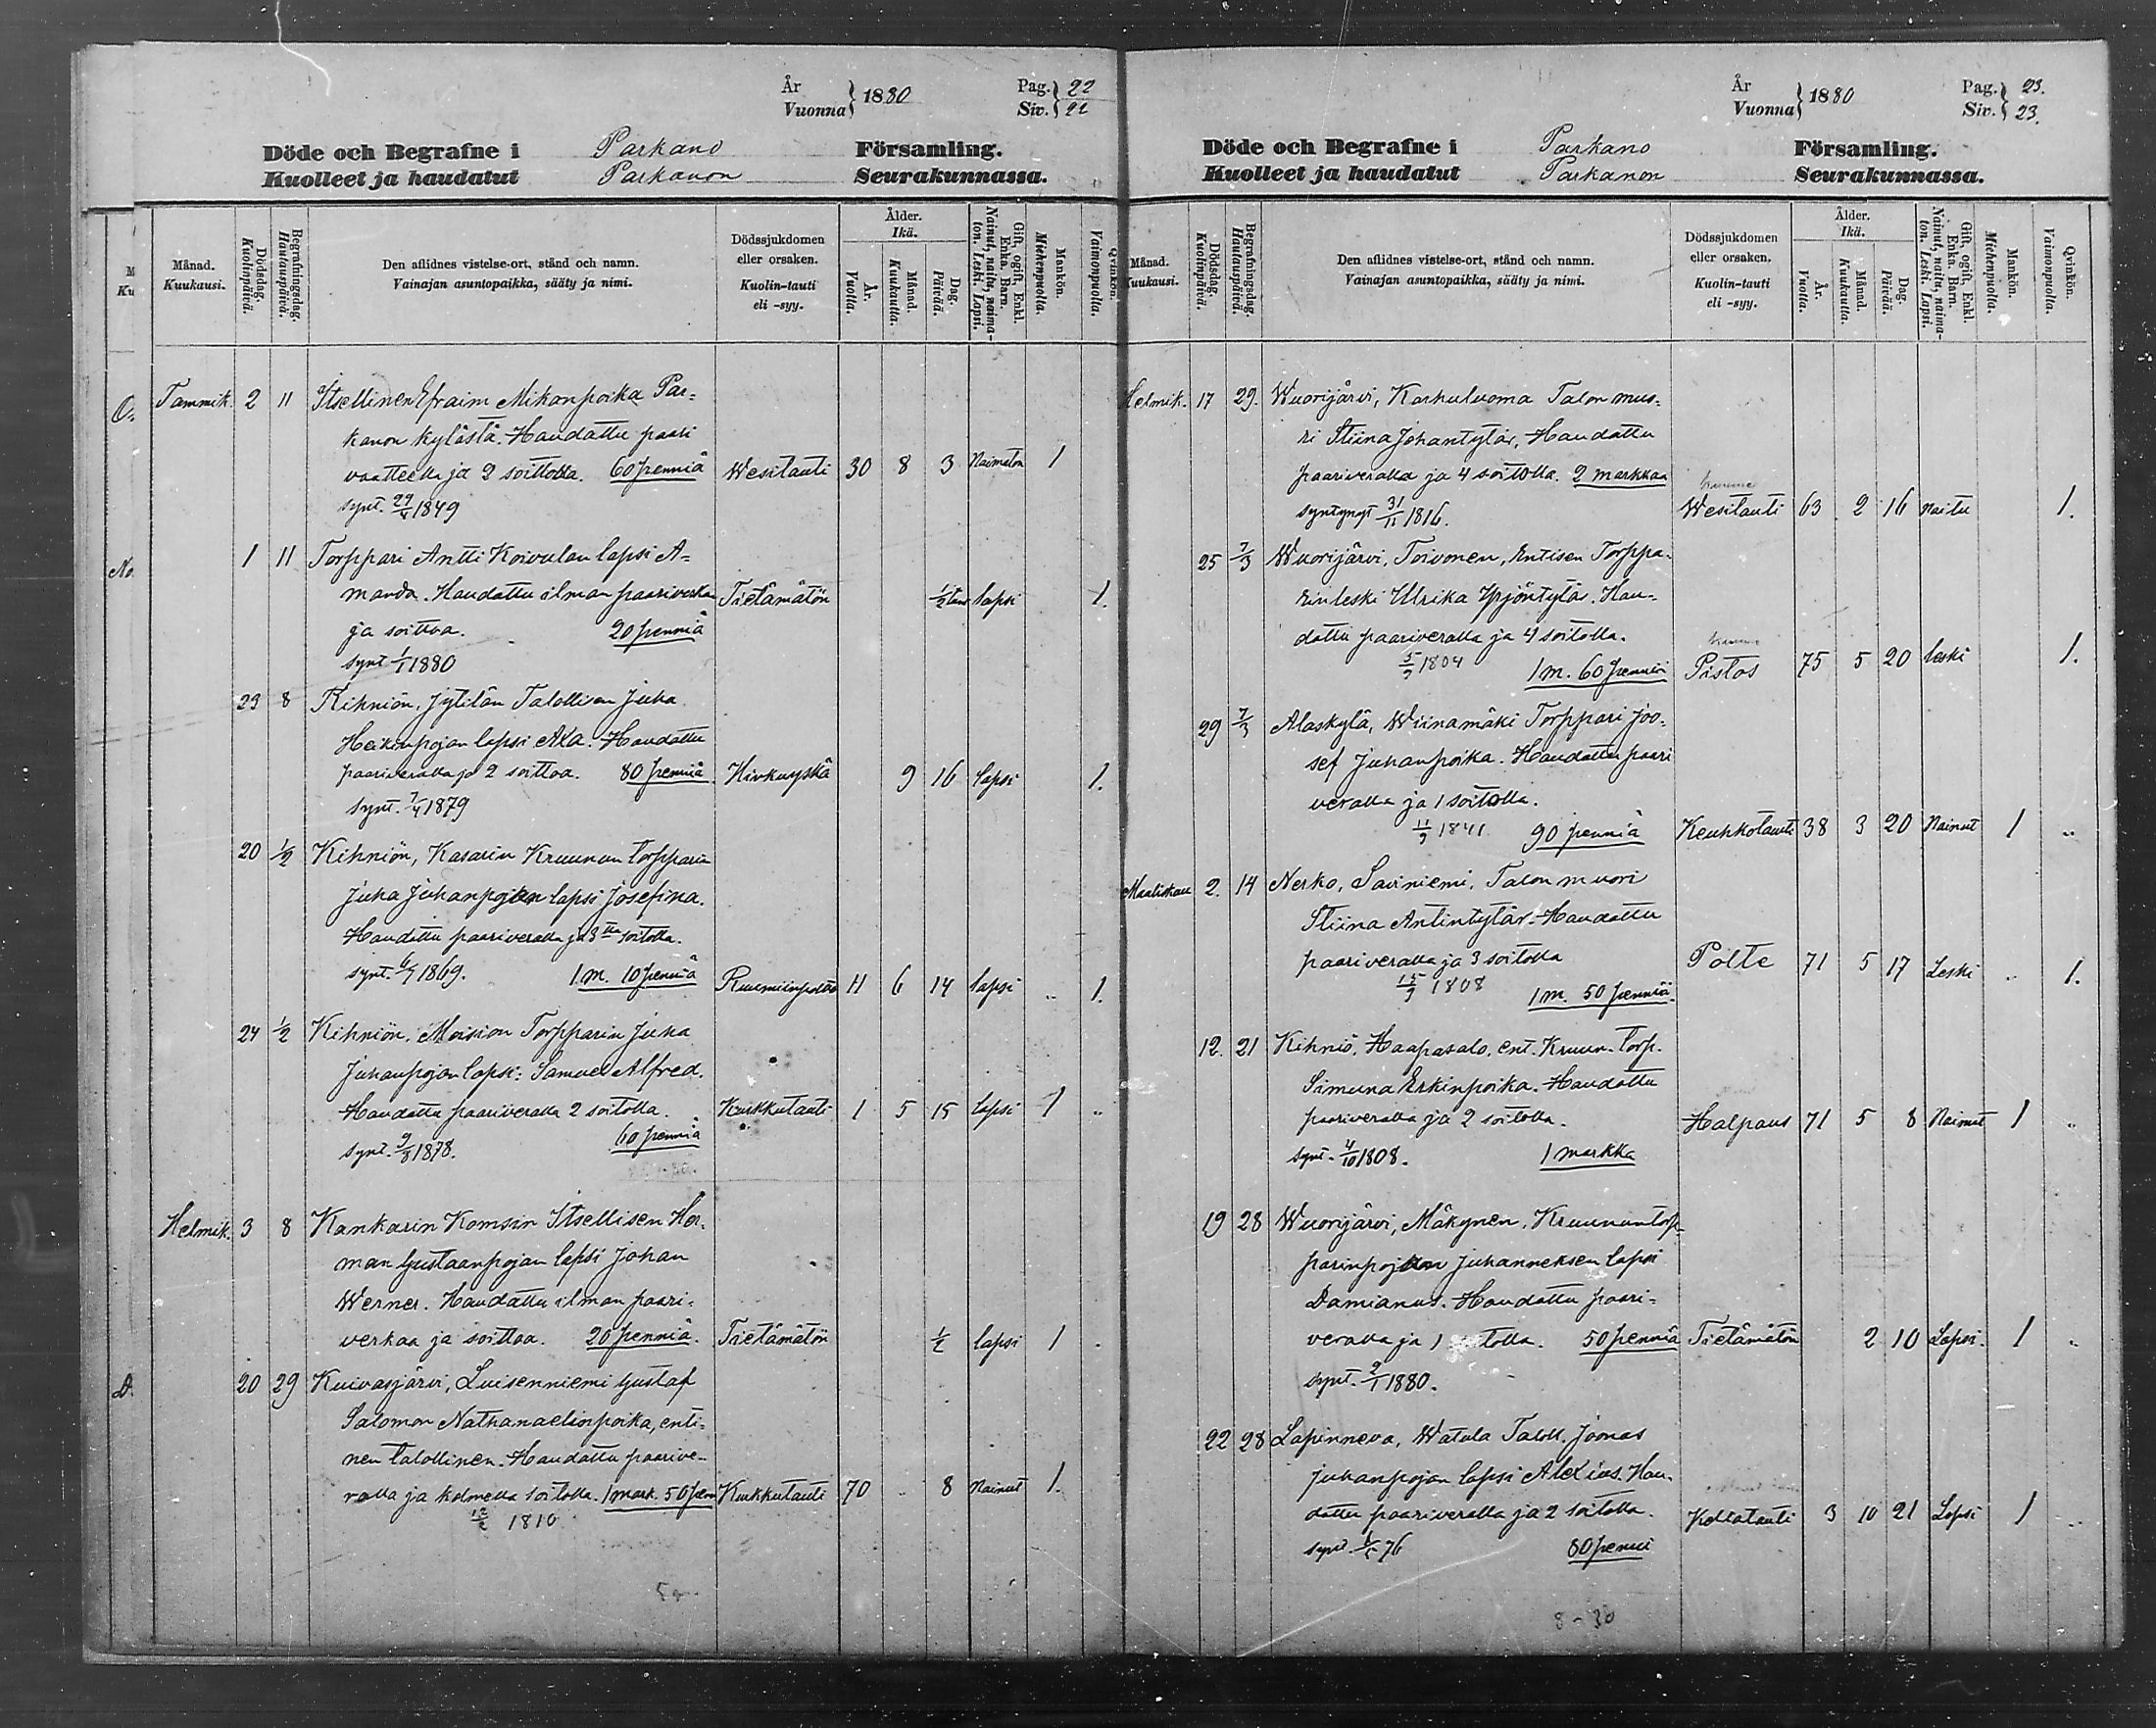 År
Vuonna } 1880
Pag. } 22
Siv. } 22
Döde och Begrafne i Parkano Församling.
Kuolleet ja haudatut Parkanon Seurakunnassa.
Månad. Kuukausi.
Dödsdag. Kuolinpäivä.
Begrafningsdag. Hautauspäivä.
Den aflidnes vistelse-ort, stånd och namn.
Vainajan asuntopaikka, sääty ja nimi.
Dödssjukdomen eller orsaken.
Kuolin-tauti eli -syy.
Ålder. Ikä.
År. Vuotta.
Månad. Kuukautta.
Dag. Päivää.
Gift, ogift, Enkl. Enka. Barn.
Nainut, naitu, naimaton. Leski. Lapsi.
Mankön. Miehenpuolta.
Qvinkön. Vaimonpuolta.
Tammik. 2 11 Itsellinen Efraim Mikonpoika Par-
kanon kylästä. Haudattu paari
vaatteella ja 2 soitolla. 60 penniä Wesitauti 30 8 3 Naimaton 1
synt. 29/4 1849
1 11 Torppari Antti Koivulan lapsi A-
manda. Haudattu ilman paariverkaa Tietämätön 1/2 lapsi 1.
ja soittoa. 20 penniä
synt 1/1 1880
23 8 Kihniön, Jytilän Talollisen Juha
Heikinpojan lapsi Ada. Haudattu
paariveralla ja 2 soittoa. 80 penniä Hinkuyskä 9 16 lapsi 1.
synt. 7/4 1879
20 1/2 Kihniön, Kasarin Kruunun torpparin
Juha Juhanpojan lapsi Josefina.
Haudattu paariveralla ja 3lla soitolla.
synt. 6/7 1869. 1 m. 10 penniä 11 6 14 lapsi 1.
24 1/2 Kihniön, Moision Torpparin Juha
Juhanpojan lapsi: Samuel Alfred.
Haudattu paariveralla 2 soitolla. Kurkkutauti 1 5 15 lapsi 1
synt. 9/8 1878. 60 penniä
Helmik. 3 8 Kankarin Komsin Itsellisen Her-
man Gustaanpojan lapsi Johan
Werner. Haudattu ilman paari-
verkaa ja soittoa. 20 penniä. Tietämätön 1/2 lapsi 1
20 29 Kuivasjärvi, Luisenniemi Gustaf
Salomon Nathanaelinpoika, enti-
nen talollinen. Haudattu paarive-
ralla ja kolmella soitolla. 1 mark. 50 pen Kurkkutauti 70 8 Nainut 1.
12/2 1810
År
Vuonna } 1880
Pag. } 23.
Siv. } 23.
Döde och Begrafne i Parkano Församling.
Kuolleet ja haudatut Parkanon Seurakunnassa.
Månad. Kuukausi.
Dödsdag. Kuolinpäivä.
Begrafningsdag. Hautauspäivä.
Den aflidnes vistelse-ort, stånd och namn.
Vainajan asuntopaikka, sääty ja nimi.
Dödssjukdomen eller orsaken.
Kuolin-tauti eli -syy.
Ålder. Ikä.
År. Vuotta.
Månad. Kuukautta.
Dag. Päivää.
Gift, ogift, Enkl. Enka. Barn.
Nainut, naitu, naimaton. Leski. Lapsi.
Mankön. Miehenpuolta.
Qvinkön. Vaimonpuolta.
Helmik. 17 29. Wuorijärvi, Karhuluoma Talon muo-
ri Stiina Johantytär, Haudattu
paariveralla ja 4 soitolla. 2 markkaa
syntynyt 31/11 1816. Wesitauti 63 2 16 Naitu 1.
25 7/3 Wuorijärvi, Toivonen, Entisen Torppa-
rin leski Ulrika Yrjöntytär. Hau-
dattu paariveralla ja 4 soitolla.
5/9 1804 1 m. 60 penniä Pistos 75 5 20 leski 1.
29 7/3 Alaskylä, Wiinamäki Torppari Joo-
sef Juhanpoika. Haudattu paari
veralla ja 1 soitolla.
11/9 1841 90 penniä Keuhkotauti 38 3 20 Nainut 1
Maaliskuu 2. 14 Nerko, Saviniemi, Talon muori
Stiina Antintytär. Haudattu
paariveralla ja 3 soitolla Polte 71 5 17 Leski 1.
15/9 1808 1 m. 50 penniä.
12. 21 Kihniö, Haapasalo, ent. Kruun. torp.
Simuna Erkinpoika. Haudattu
paariveralla ja 2 soitolla. Halpaus 71 5 8 Nainut 1
synt. 4/10 1808. 1 markka
19 28 Wuorijärvi, Mäkynen, Kruunun torp-
parinpojan Juhanneksen lapsi
Damianus. Haudattu paari-
veralla ja 1 tolla. 50 penniä Tietämätön 2 10 Lapsi. 1
synt. 9/1 1880.
22 28 Lapinneva, Watula Taloll. Joonas
Juhanpojan lapsi Alexius. Hau-
dattu paariveralla ja 2 soitolla. 3 10 21 Lapsi 1
synt 1/5 76 80 penni
8-30